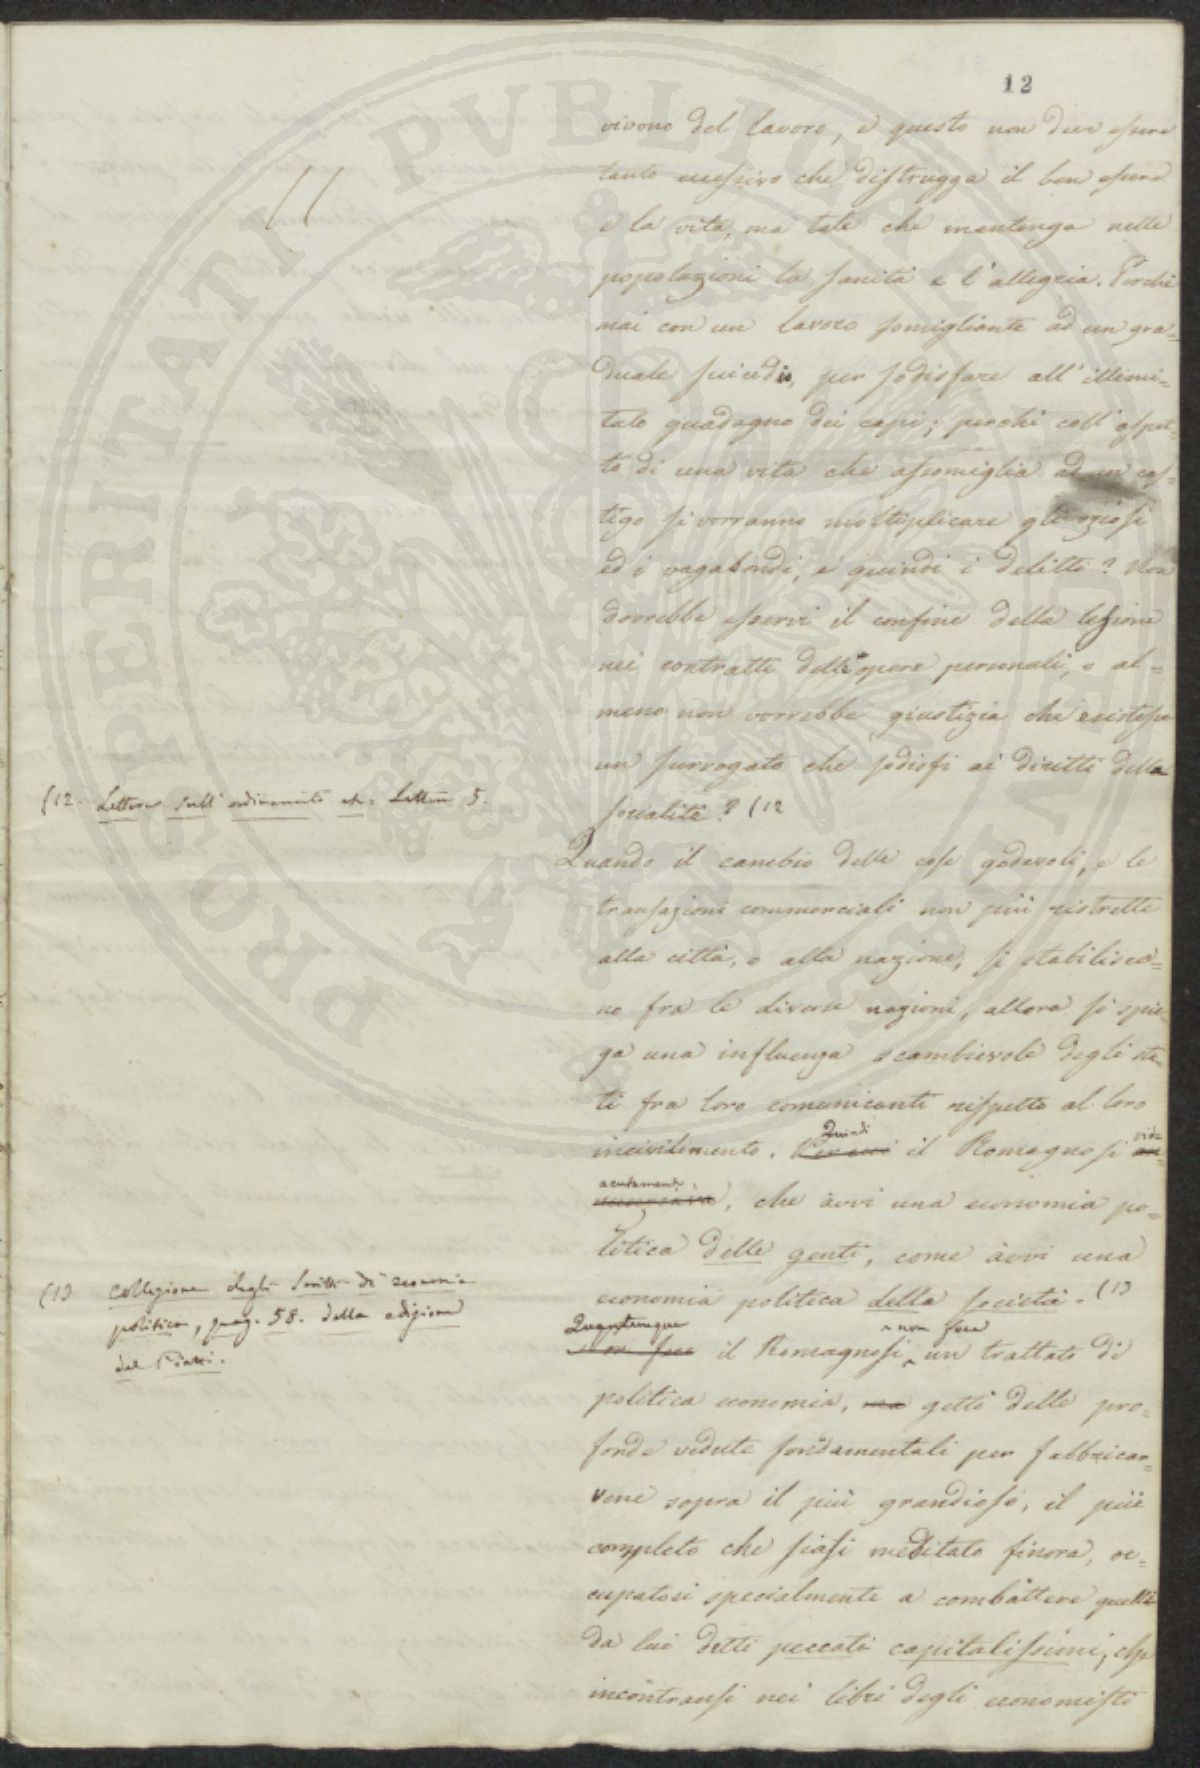 12
11
vivono del lavoro, e questo non deve essere
tanto eccessivo che distrugga il ben essere
e la vita, ma tale che mantenga nelle
popolazioni la sanità e l'allegria. Perchè
mai con un lavoro somigliante ad un gra=
duale suicidio, per sodisfare all'illimi=
tato guadagno dei capi; perchè coll'aspet=
to di una vita che assomiglia ad un cas=
tigo si vorranno moltiplicare gli oziosi
ed i vagabondi, e quindi i delitti? Non
dovrebbe esservi il confine della lesione
nei contratti dell'opere personali, o al=
meno non vorrebbe giustizia che esistesse
un surrogato che sodisfi ai diritti della
socialità? (12
(12. Lettere sull'ordinamento etc. Lettera 5.
Quando il cambio delle cose godevoli, e le
transazioni commerciali non più ristrette
alla città, o alla nazione, si stabilisco=
no fra le diverse nazioni, allora si spie=
ga una influenza scambievole degli sta=
ti fra loro comunicanti rispetto al loro
incivilimento. Quindi il Romagnosi vide
acutamente, che avvi una economia po=
litica delle genti, come avvi una
economia politica della società. (13
(13 Collezione degli scritti di economia
politica, pag. 58. della edizione
del Piatti.
Quantunque il Romagnosi non fece un trattato di
politica economia, ma gettò delle pro=
fonde vedute fondamentali per fabbricar=
vene sopra il più grandioso, il più
completo che siasi meditato finora, oc=
cupatosi specialmente a combattere quelli
da lui detti peccati capitalissimi, che
incontransi nei libri degli economisti
PROSPERITATI PVBLICAE